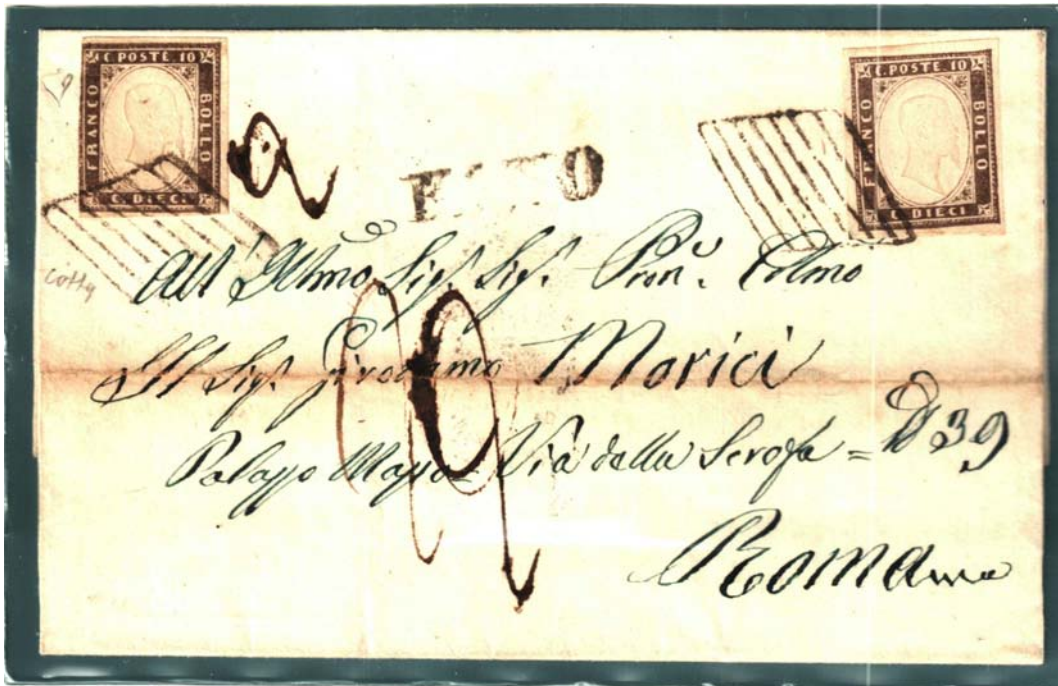 C. POSTE 10
FRANCO
BOLLO
C. DIECI
C. POSTE 10
FRANCO
BOLLO
C. DIECI
cottg
All' Illmo Sig. Sig. Pron. Colmo
Il Sig. Girolamo Morici
Palazzo Via della Scrofa = 39
Roma